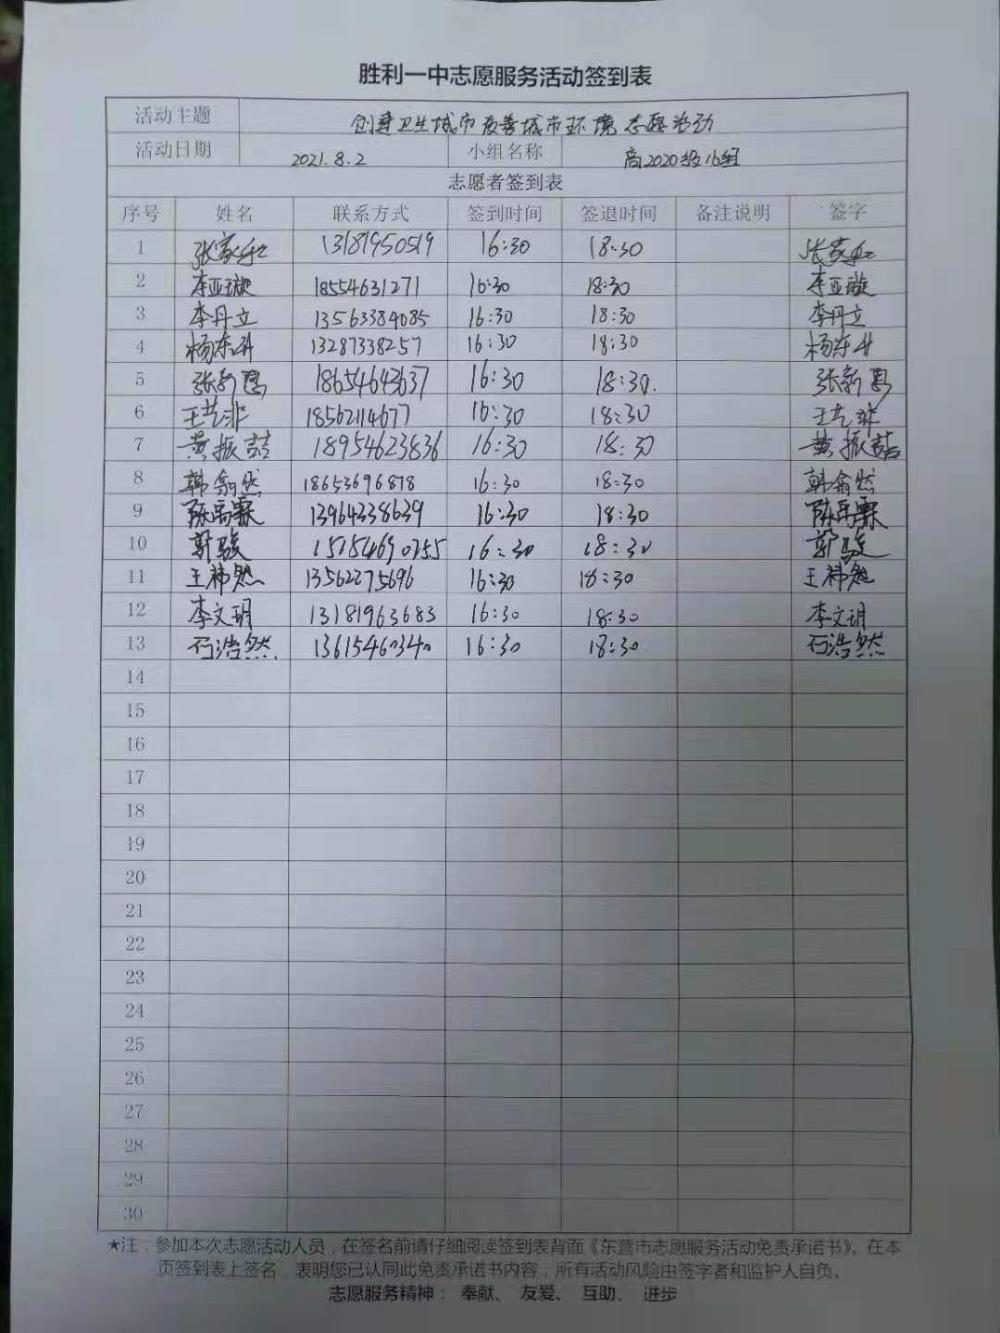 胜利一中志愿服务活动签到表
活动主题 创建卫生城市改善城市环境志愿活动
活动日期 2021.8.2 小组名称 高2020级16组
志愿者签到表
序号 姓名 联系方式 签到时间 签退时间 备注说明 签字
1 张家和 13181950519 16:30 18:30 张家和
2 李亚璇 18554631271 16:30 18:30 李亚璇
3 李丹立 13563384085 16:30 18:30 李丹立
4 杨东升 13287338257 16:30 18:30 杨东升
5 张新 18654643637 16:30 18:30. 张新
6 王艺非 18562114677 16:30 18:30 王艺非
7 黄振喆 18954623836 16:30 18:30 黄振喆
8 韩翕然 18653696878 16:30 18:30 韩翕然
9 陈禹霖 13964338639 16:30 18:30 陈禹霖
10 郭骏 16:30 18:30 郭骏
11 王祎然 13562275696 16:30 18:30 王祎然
12 李文玥 13181963683 16:30 18:30 李文玥
13 石浩然 13615460340 16:30 18:30 石浩然
14
15
16
17
18
19
20
21
22
23
24
25
26
27
28
29
30
★注：参加本次志愿活动人员，在签名前请仔细阅读签到表背面《东营市志愿服务活动免责承诺书》。在本
页签到表上签名，表明您已认同此免责承诺书内容，所有活动风险由签字者和监护人自负。
志愿服务精神： 奉献、 友爱、 互助、 进步